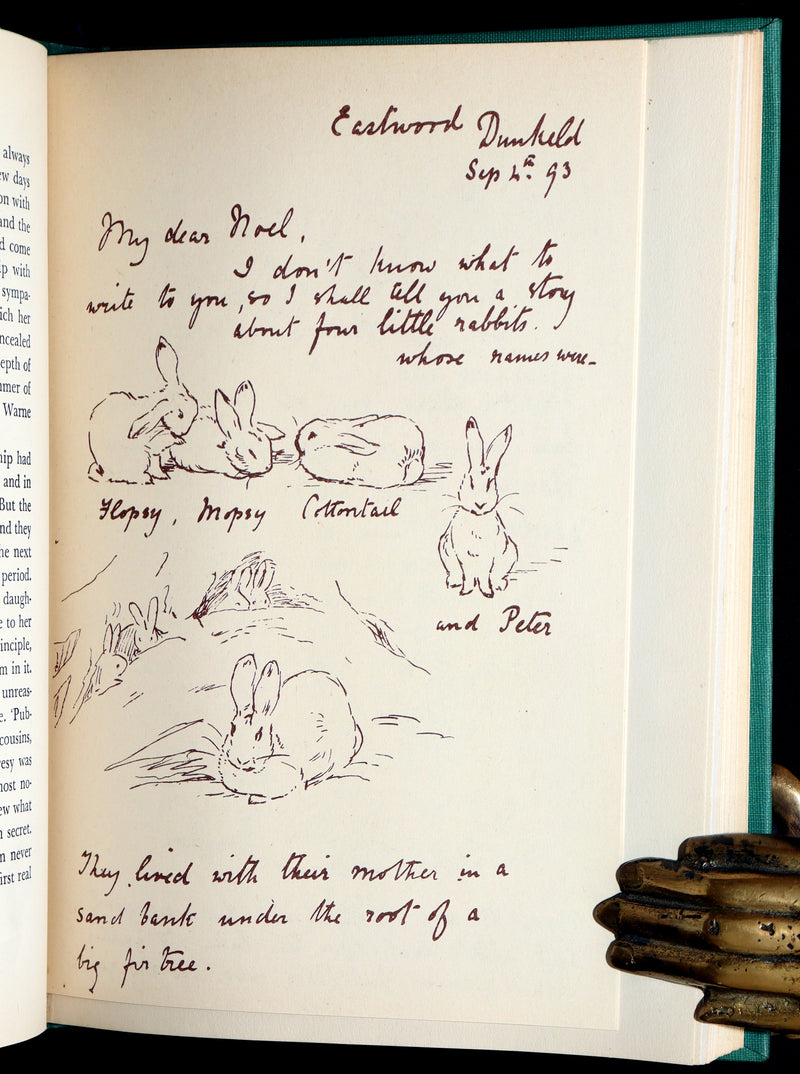 always
ew days
on with
and the
d come
ip with
sympa-
ich her
ncealed
epth of
mmer of
Warne
hip had
and in
But the
nd they
he next
period.
daugh-
e to her
inciple,
m in it.
unreas-
e. ‘Pub-
cousins,
resy was
nost no-
ew what
n secret.
n never
first real
Eastwood Dunkeld
Sep 4th. 93
My dear Noel,
I don't know what to
write to you, so I shall tell you a story
about four little rabbits.
whose names were_
Flopsy, Mopsy Cottontail
and Peter
They lived with their mother in a
sand bank under the root of a
big fir tree.